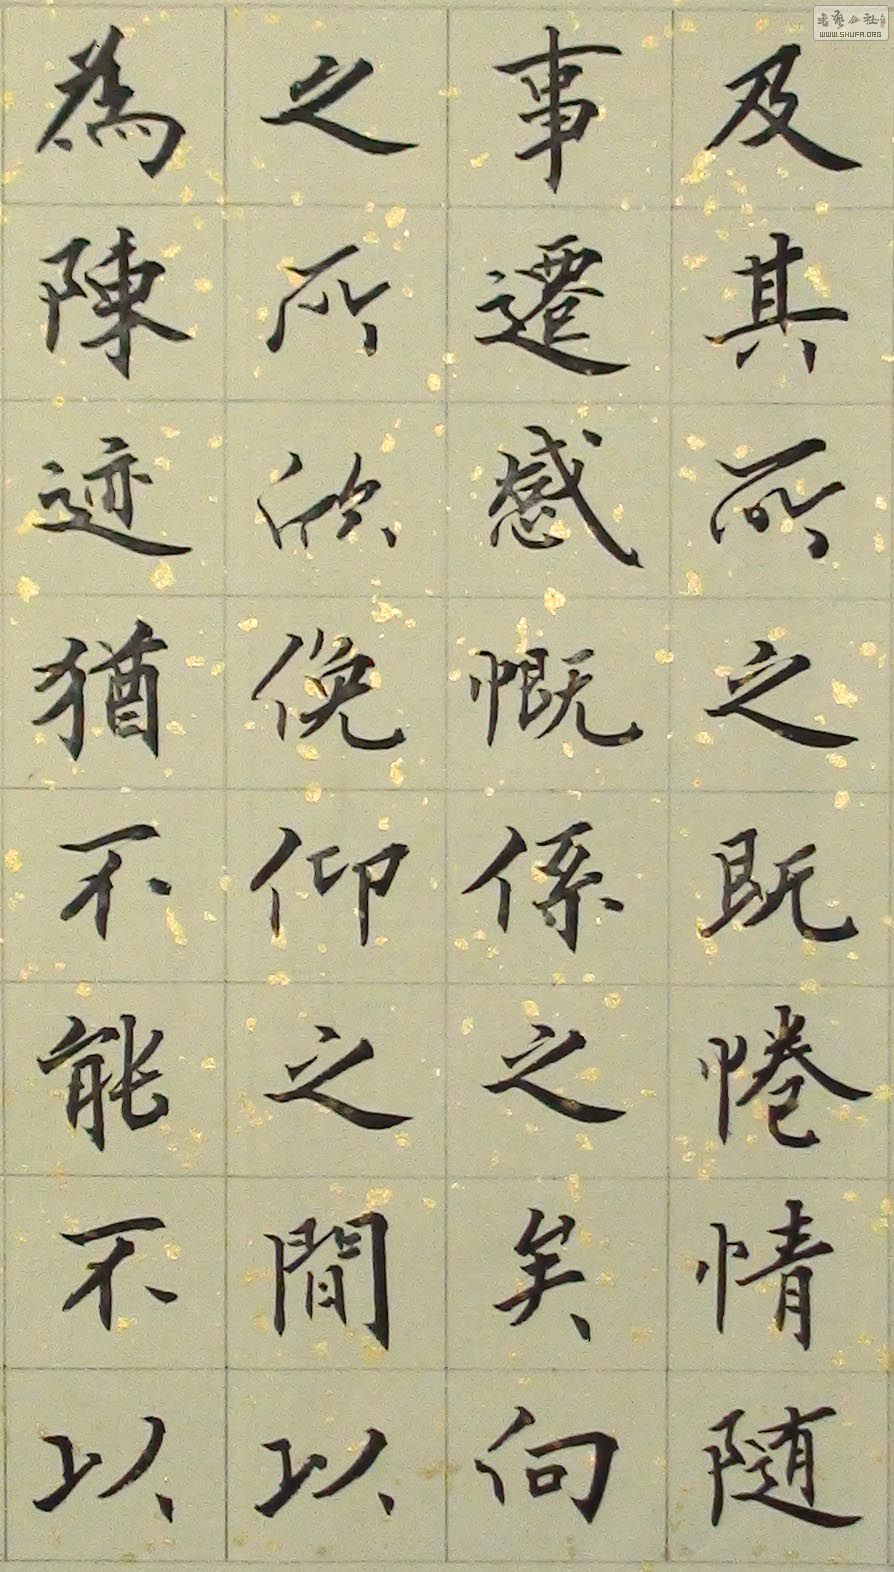 及其所之既惓情随
事遷感慨係之矣向
之所欣俛仰之間以
為陳迹猶不能不以
書藝公社
WWW.SHUFA.ORG